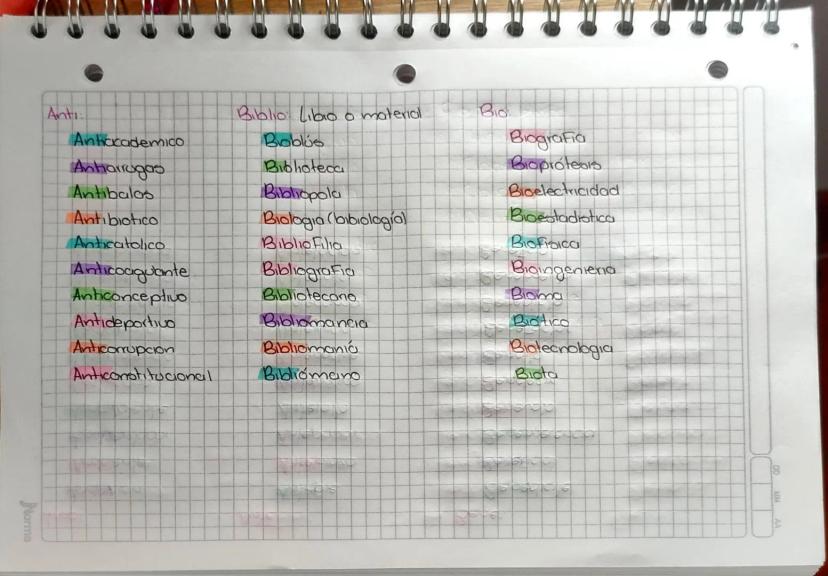 Anti:
Antiacademico
Antiarrugas
Antibalas
Antibiotico
Anticatolico
Anticoaguante
Anticonceptivo
Antideportivo
Anticorrupcion
Anticonstitucional
Biblio: Libro o material
Bioblús
Biblioteca
Bibliopola
Biologia (bibiología)
Bibliofilia
Bibliografia
Bibliotecario
Bibliomancia
Bibliomanía
Bibliómano
Bio
Biografia
Bioprótesis
Bioelectricidad
Bioestadistica
Biofisica
Bioingenieria
Bioma
Biótico
Biotecnologia
Biota
Norma
DD
MM
AA